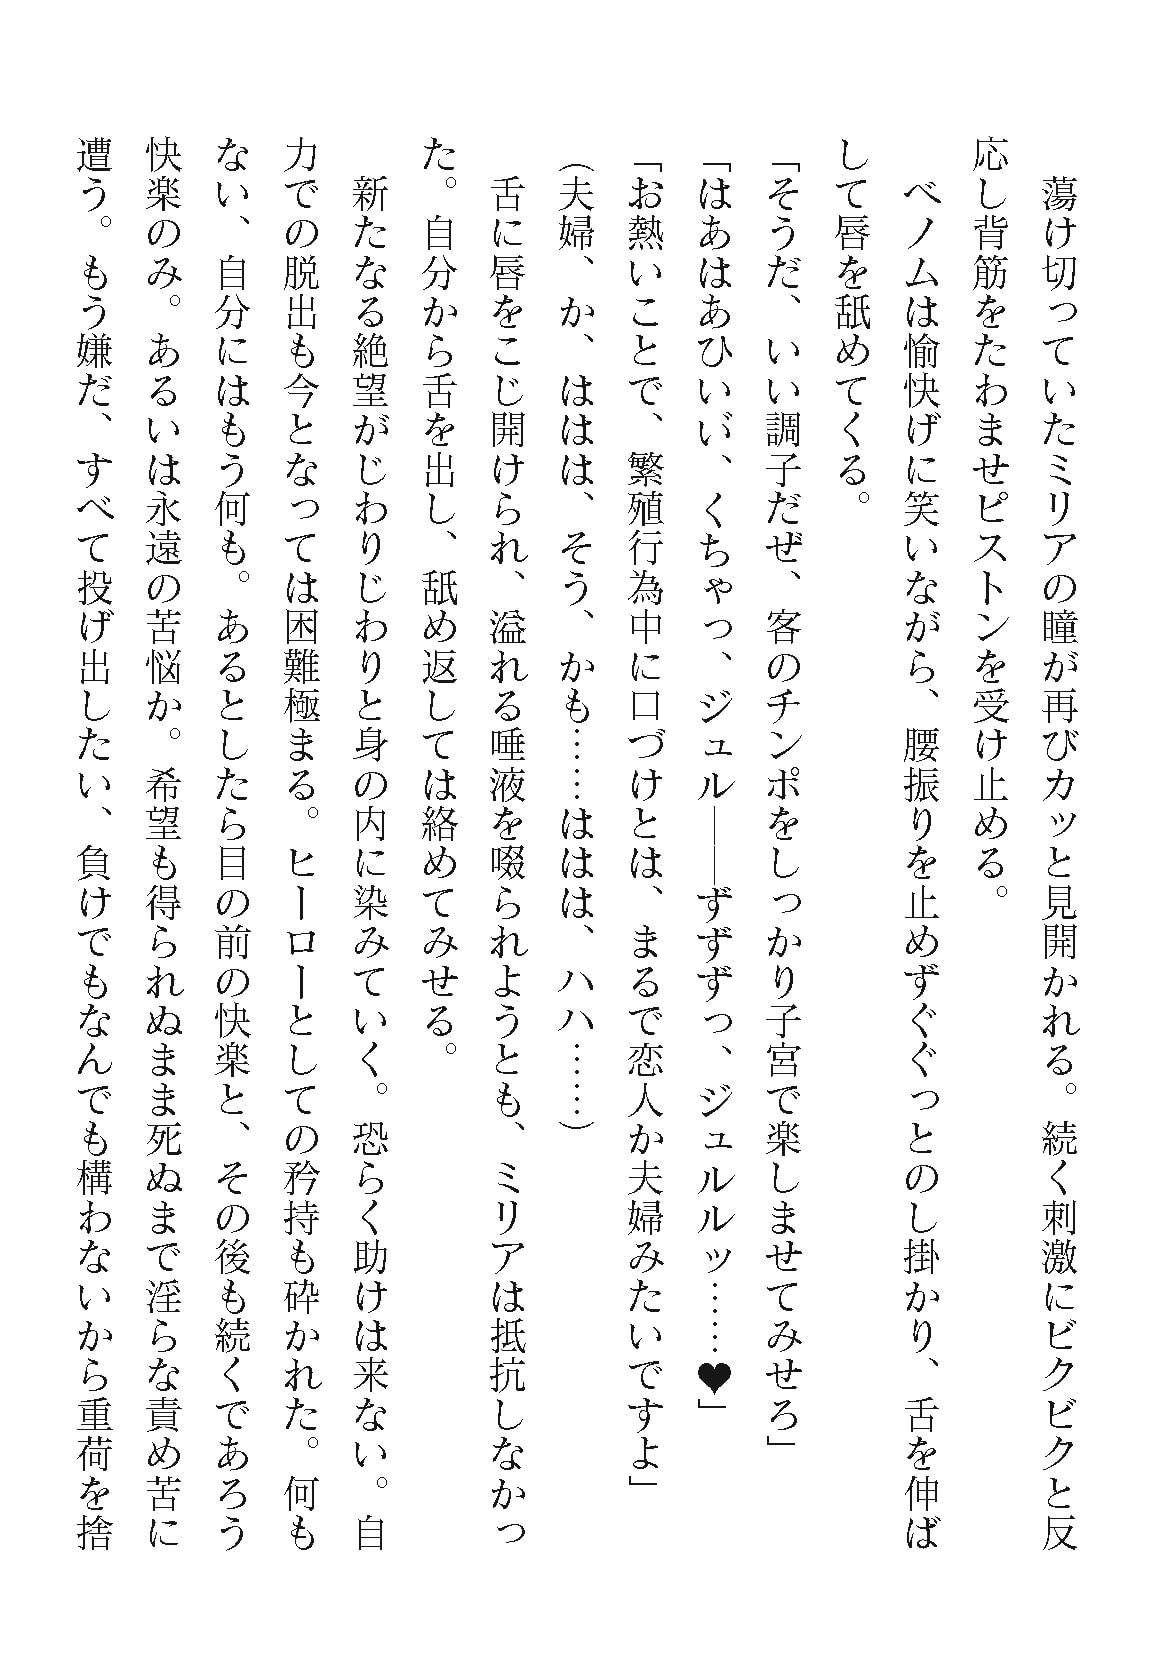 蕩け切っていたミリアの瞳が再びカッと見開かれる。続く刺激にビクビクと反
応し背筋をたわませピストンを受け止める。
　ベノムは愉快げに笑いながら、腰振りを止めずぐぐっとのし掛かり、舌を伸ば
して唇を舐めてくる。
「そうだ、いい調子だぜ、客のチンポをしっかり子宮で楽しませてみせろ」
「はあはあひいい゙、くちゃっ、ジュル――ずずずっ、ジュルルッ……♥」
「お熱いことで、繁殖行為中に口づけとは、まるで恋人か夫婦みたいですよ」
（夫婦、か、ははは、そう、かも……ははは、ハハ……）
　舌に唇をこじ開けられ、溢れる唾液を啜られようとも、ミリアは抵抗しなかっ
た。自分から舌を出し、舐め返しては絡めてみせる。
　新たなる絶望がじわりじわりと身の内に染みていく。恐らく助けは来ない。自
力での脱出も今となっては困難極まる。ヒーローとしての矜持も砕かれた。何も
ない、自分にはもう何も。あるとしたら目の前の快楽と、その後も続くであろう
快楽のみ。あるいは永遠の苦悩か。希望も得られぬまま死ぬまで淫らな責め苦に
遭う。もう嫌だ、すべて投げ出したい、負けでもなんでも構わないから重荷を捨